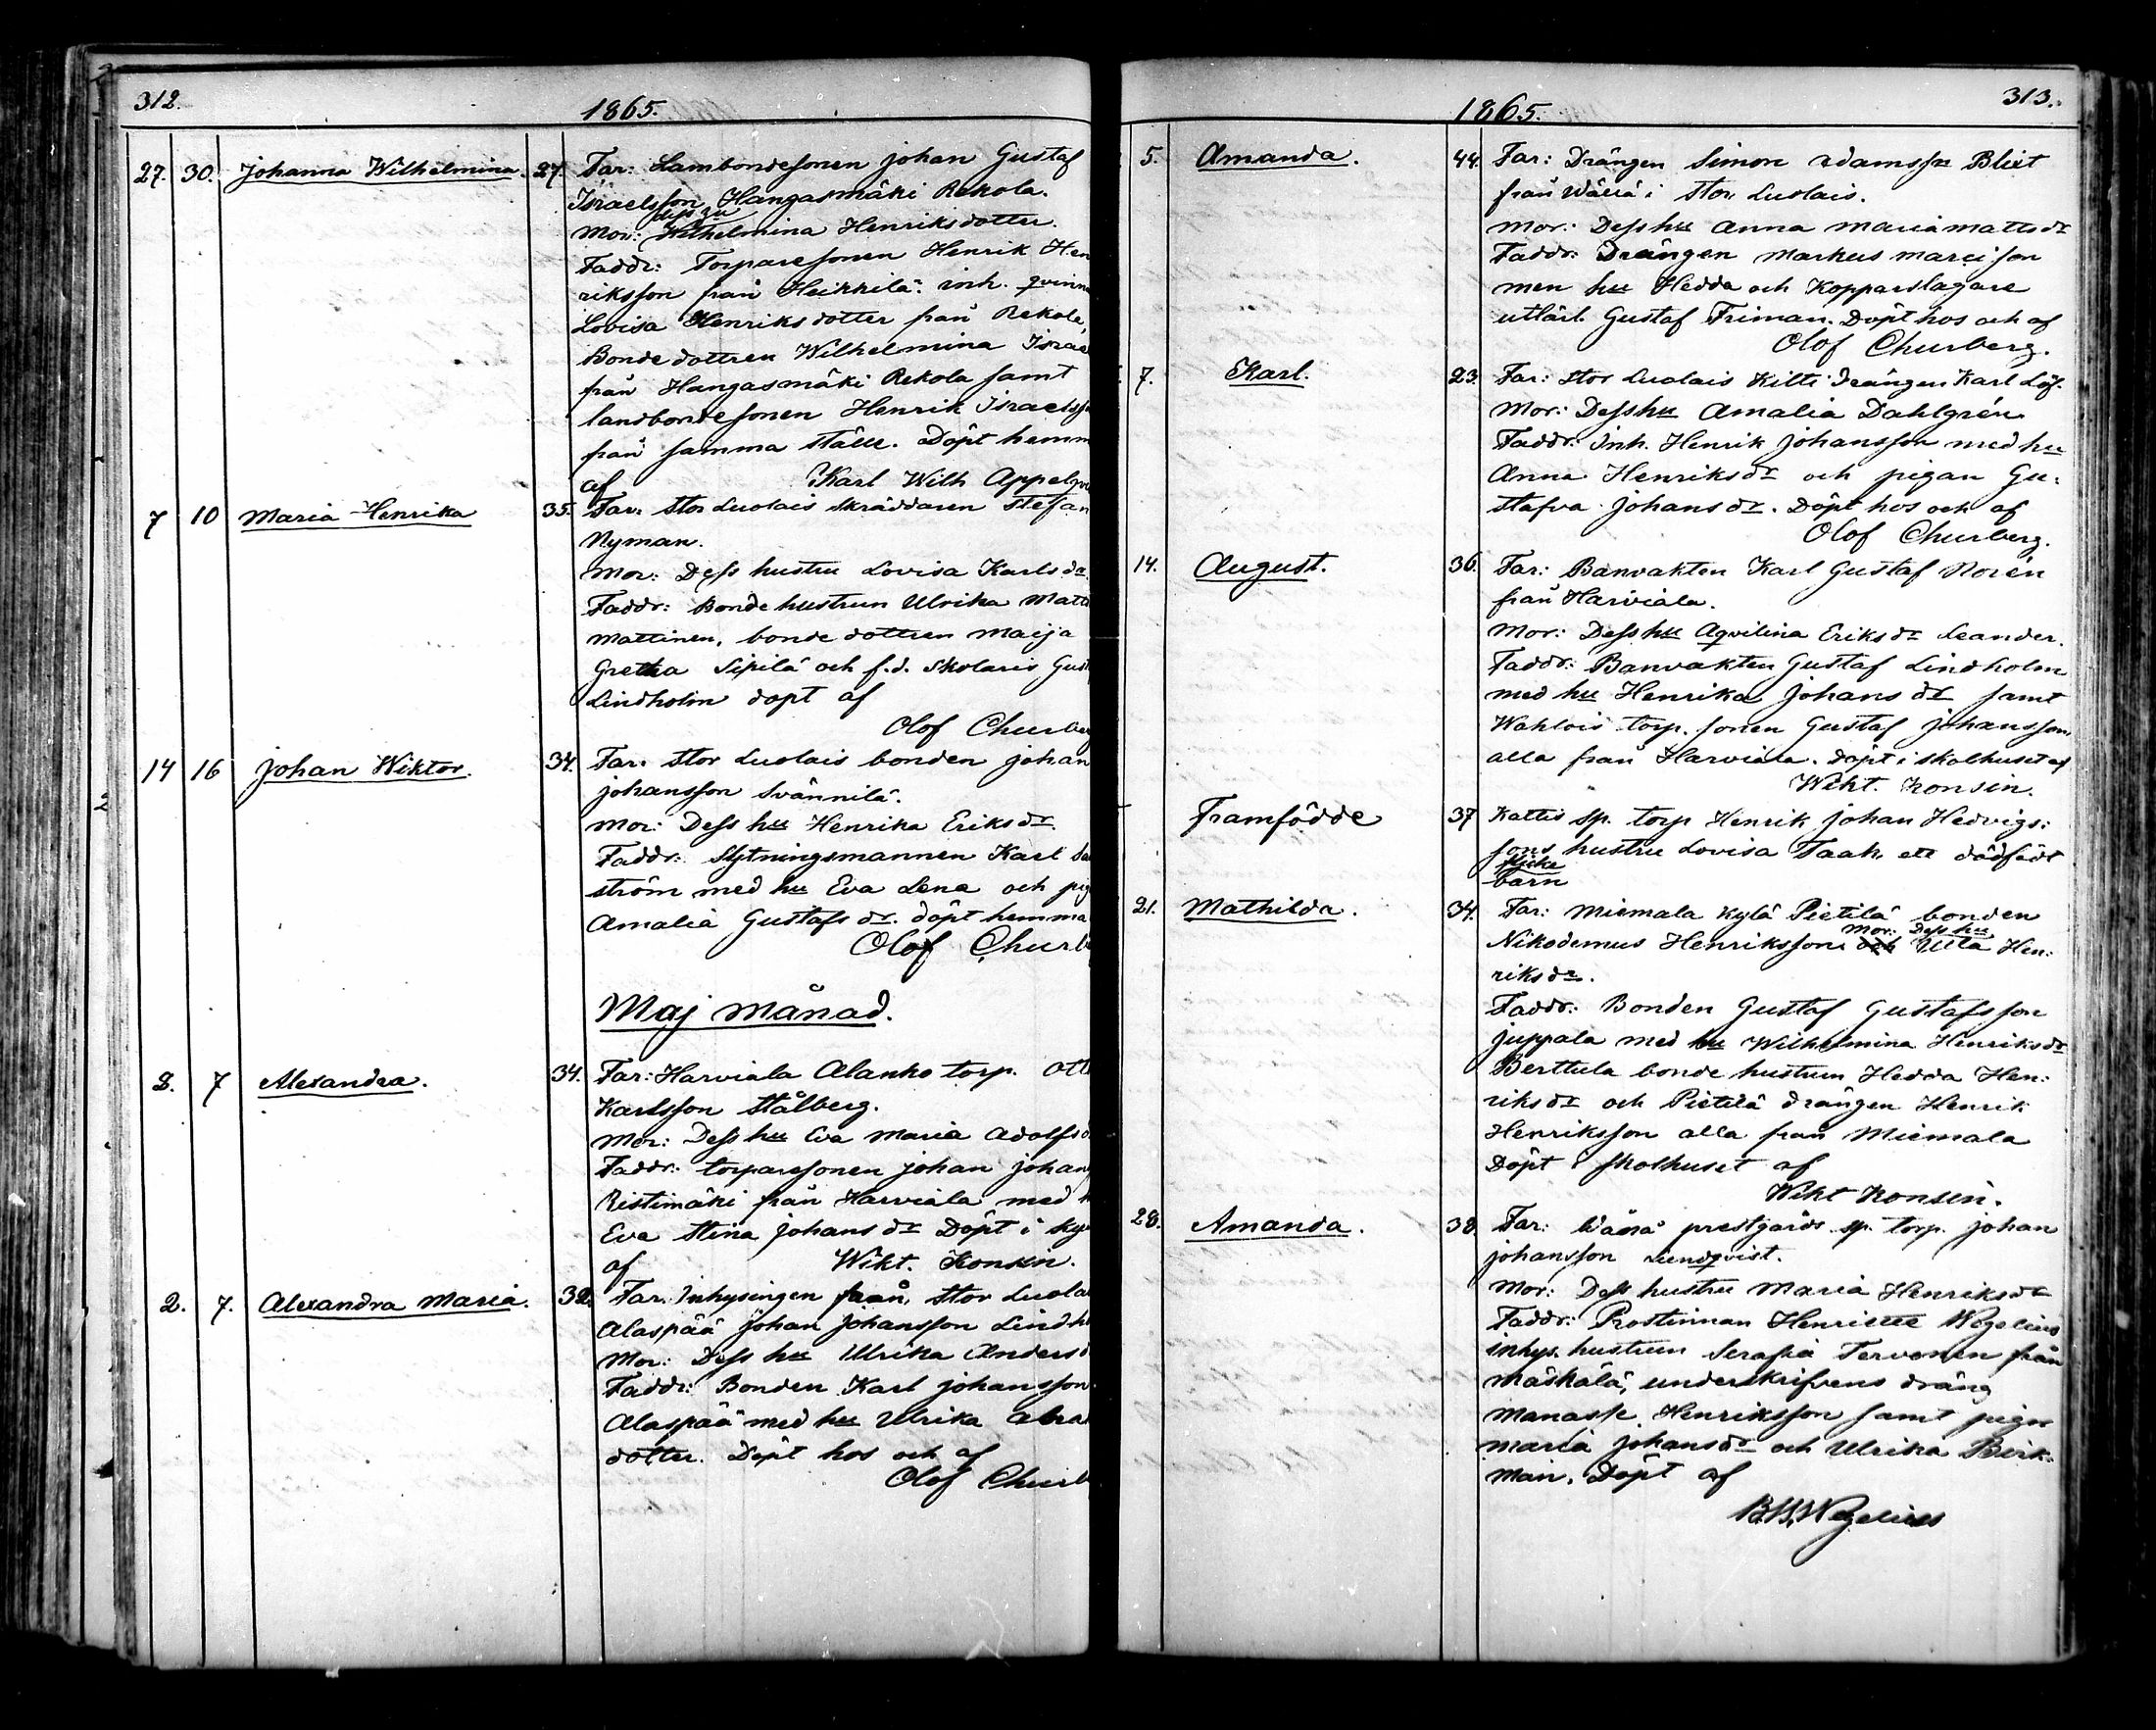 312.
1865.
27. 30. Johanna Wilhelmina. 27. Far: Lambondesonen Johan Gustaf
Israelsson Hangasmäki Rekola.
dess hu
Mor: Wilhelmina Henriksdotter.
Faddr: Torparesonen Henrik Hen
riksson från Heikkilä. inh. qvinn
Lovisa Henriksdotter från Rekola,
Bonde dottren Wilhelmina Israe
från Hangasmäki Rekola samt
landbondesonen Henrik Israelss
från samma ställe. Döpt hemm
af Karl Wilh Appelgr
7 10 Maria Henrika 35. Far. Stor Luolais Skräddaren Stefan
Nyman.
Mor: Dess hustru Lovisa Karlsdr.
Faddr: Bondehustrun Ulrika Matt
Mattinen, bonde dottren Maija
Gretha Sipilä och f.d. Skolaris Gust
Lindholm döpt af
Olof Churber
14 16 Johan Wiktor. 34. Far. Stor Luolais bonden Johan
Johansson Svännilä.
Mor: Dess hu Henrika Eriksdr.
Faddr: Slytningsmannen Karl
ström med hu Eva Lena och pig
Amalia Gustafsdr. döpt hemma
Olof Churb
Maj månad.
3. 7 Alexandra. 34. Far: Harviala Alanko torp. Ott
Karlsson Stålberg.
Mor: Dess hu Eva Maria Adolfsd
Faddr: torparesonen Johan Johan
Ristimäki från Harviala med h
Eva Stina Johansdr Döpt i ky
af Wikt. Konsin.
2. 7. Alexandra Maria. 32. Far: Inhysingen från Stor Luola
Alaspää Johan Johansson Lindh
Mor: Dess hu Ulrika Andersd
Faddr: Bonden Karl Johansson
Alaspää med hu Ulrika Abra
dotter. Döpt hos och af
Olof Churb
1865.
313.
5. Amanda. 44. Far: Drängen Simon Adamss Blixt
från Wällä i Stor Luolais.
Mor: Dess hu Anna Maria Mattsdr
Faddr: Drängen Markus Marcison
men hu Hedda och Kopparslagare
utlärl. Gustaf Friman. Döpt hos och af
Olof Churberg.
7. Karl. 23. Far: Stor Luolais Kilti Drängen Karl Löf.
Mor: Dess hu Amalia Dahlgrén
Faddr: Inh. Henrik Johansson med hu
Anna Henriksdr och pigan Gu:
stafva Johansdr. Döpt hos och af
Olof Churberg.
14. August. 36. Far: Banvakten Karl Gustaf Norén
från Harviala.
Mor: Dess hu Aqvilina Eriksdr Leander.
Faddr: Banvakten Gustaf Lindholm
med hu Henrika Johansdr samt
Wahlois torp. sonen Gustaf Johansson,
alla från Harviala. döpt i skolhuset af
Wikt. Konsin.
Framfödde 37 Kattis sp. torp Henrik Johan Hedvigs:
sons hustru Lovisa Taak, ett dödfödt
flicke
barn
21. Mathilda. 34. Far: Miemala kylä Pietilä bonden
Mor: Dess hu
Nikodemus Henriksson och Ulla Hen:
riksdr.
Faddr: Bonden Gustaf Gustafsson
Juppala med hu Wilhelmina Henriksdr
Berttula bonde hustrun Hedda Hen:
riksdr och Pietilä drängen Henrik
Henriksson alla från Miemala
Döpt i skolhuset af
Wikt Konsin.
28. Amanda. 38. Far: Wånå prestgårds sp. torp. Johan
Johansson Lundqvist.
Mor: Dess hustru Maria Henriksdr
Faddr: Prostinnan Henriette Wegelius
inhys. hustrun Serafia Tervonen från
Mäskälä, underskrifvens dräng
Manasse Henriksson samt pign
Maria Johansdr och Ulrika Birk:
man. Döpt af
B.H. Wegelius